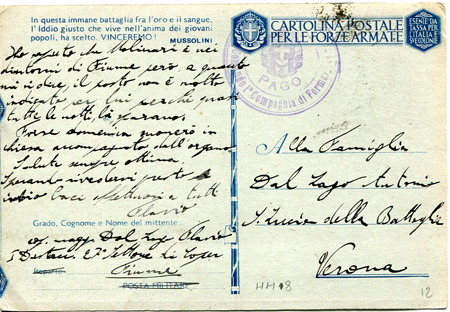 In questa immane battaglia fra l'oro e il sangue,
l'Iddio giusto che vive nell'anima dei giovani
popoli, ha scelto. VINCEREMO!
MUSSOLINI
Ho saputo che Molinari è nei
dintorni di Fiume però a quanto
mi si dice, il posto non è molto
indicato per lui perchè quasi
tutte le notti, là sparano.
Forse domenica suonerò in
chiesa accompagnato dall'organo.
Salute sempre ottima.
Sperando rivedervi presto
invio baci a tutti
Flavio
Grado, Cognome e Nome del mittente:
Dal Lago Flavio
Reparto
Fiume
POSTA MILITARE
CARTOLINA POSTALE
PER LE FORZE ARMATE
ESENTE DA
TASSA PER
L'ITALIA E
VE COLONIE
PAGO
Compagnia di
Alla Famiglia
Dal Lago Antonio
S. Lucia della Battaglia
Verona
12